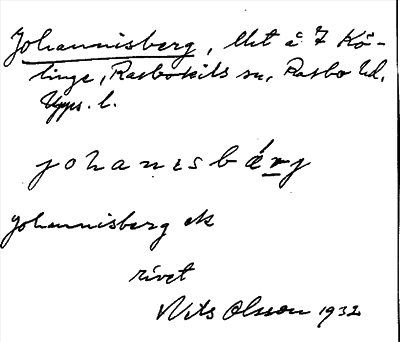 Johannisberg, lht å 7 Kö-
linge, Rasbokils sn, Rasbo hd,
Upps. l.
johanısbä́rj
Johannisberg ek
rivet
Nils Olsson 1932